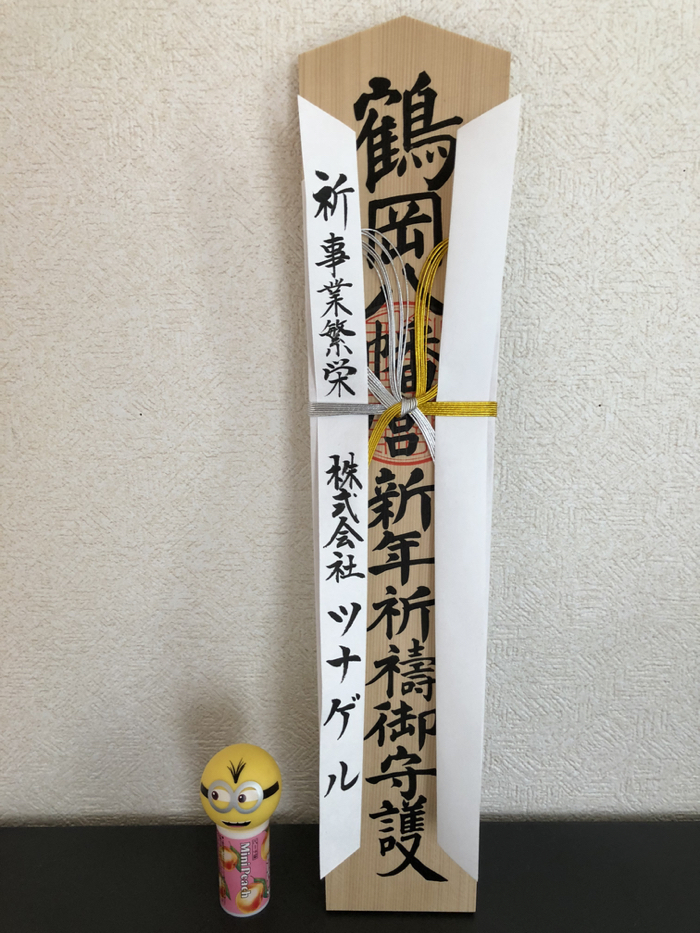 鶴岡八幡宮 新年祈禱御守護
祈 事業繁栄 株式会社 ツナゲル
MiniPeach